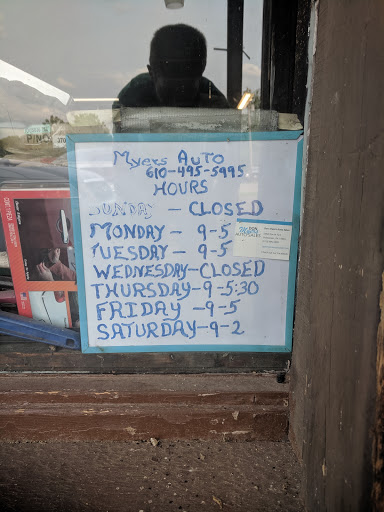 Myers Auto
610-495-5995
HOURS
SUNDAY - CLOSED
MONDAY - 9-5
TUESDAY - 9-5
WEDNESDAY-CLOSED
THURSDAY-9-5:30
FRIDAY -9-5
SATURDAY-9-2